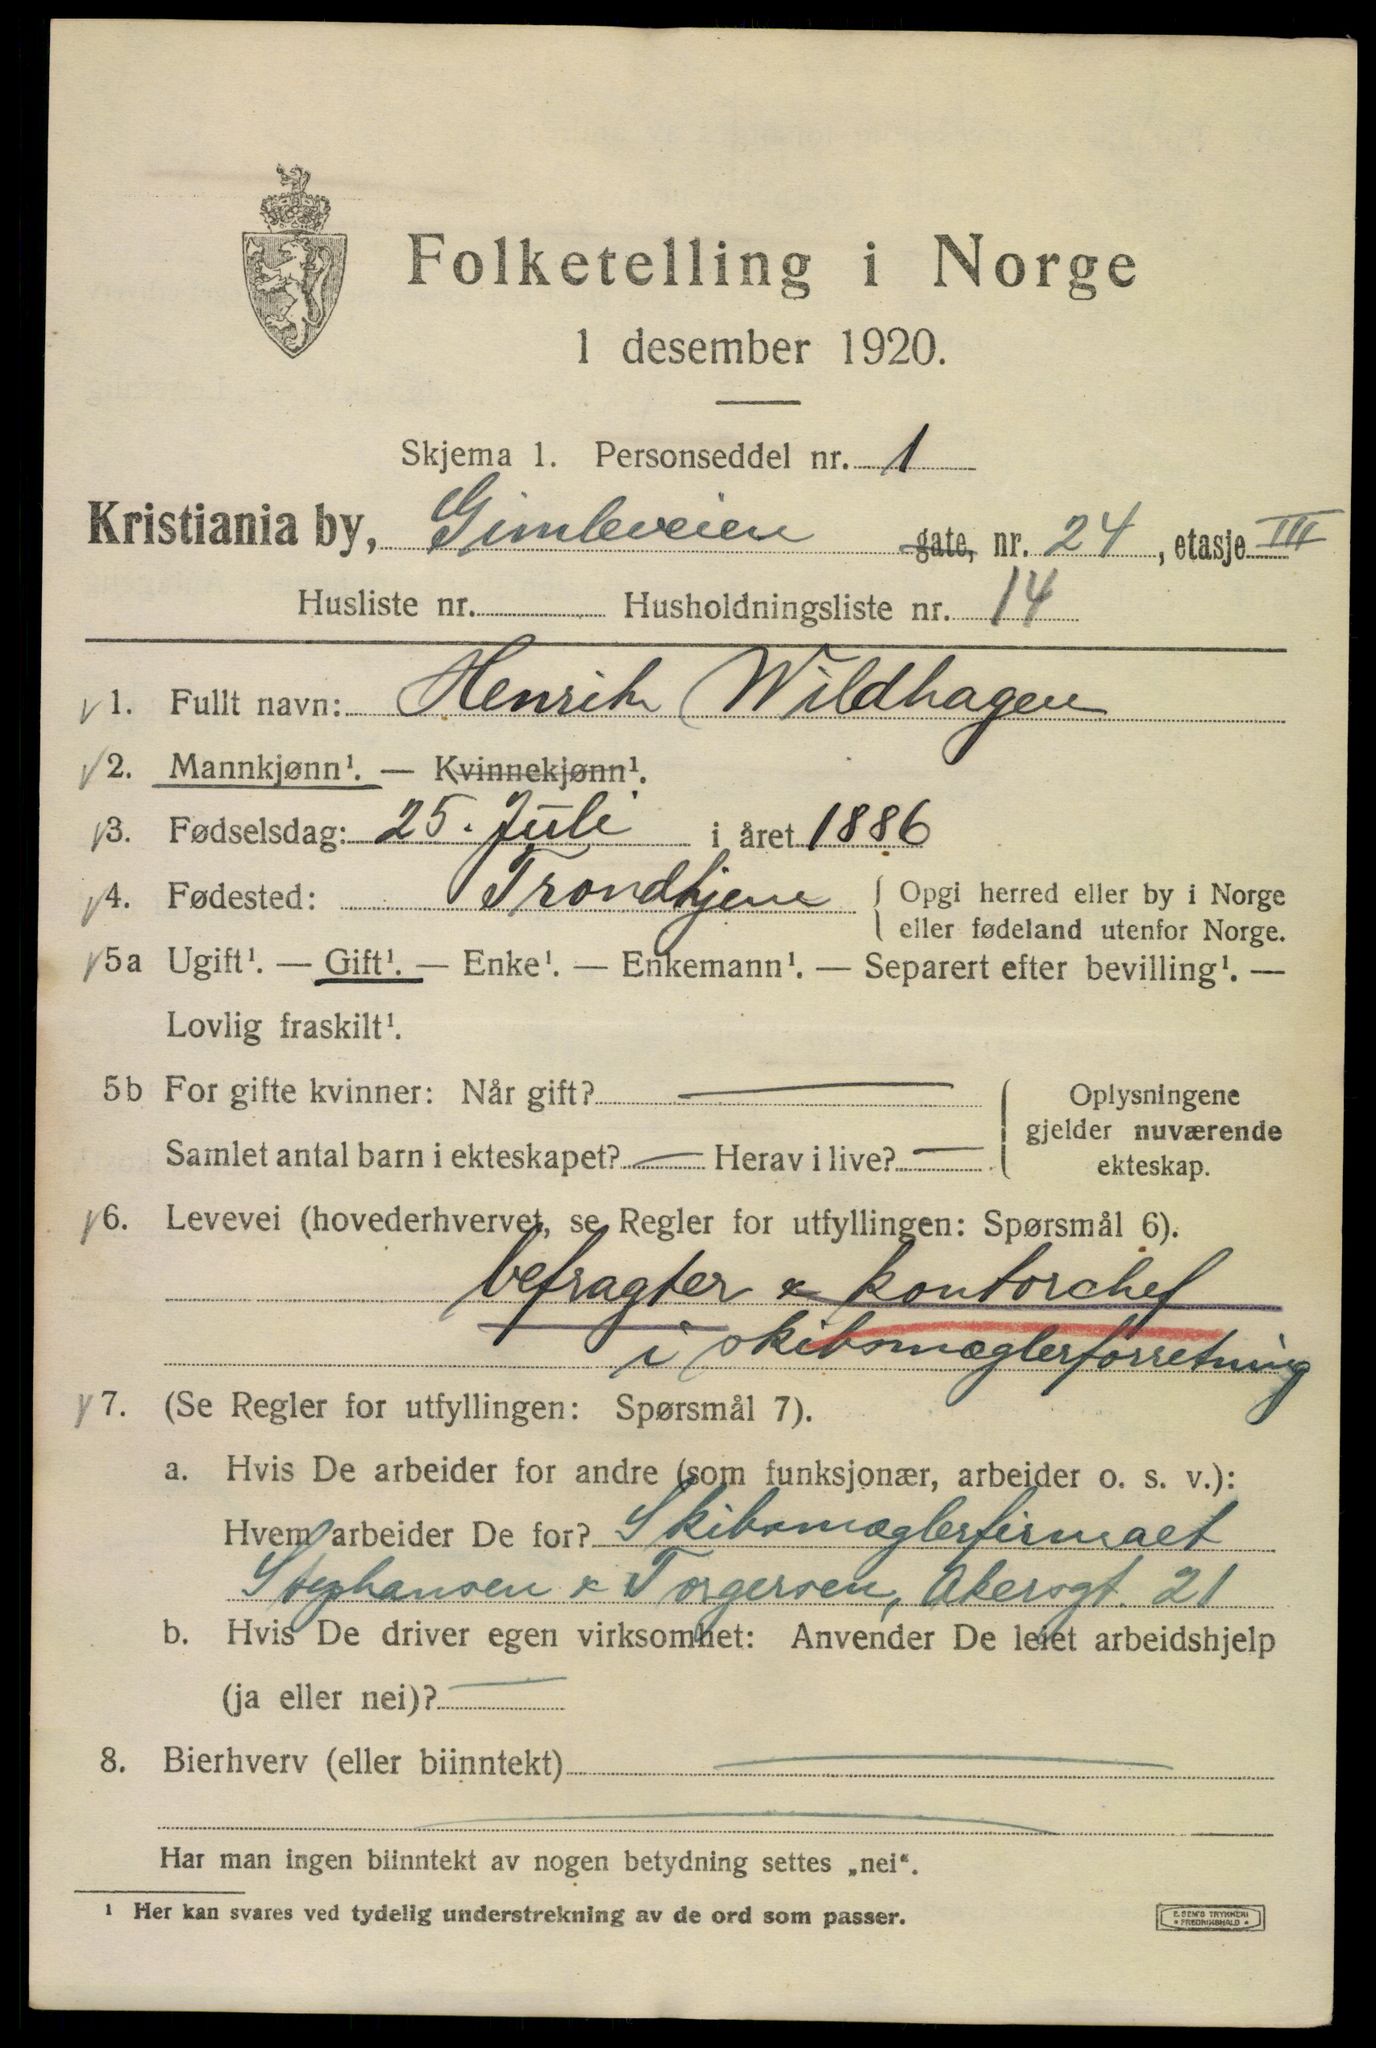 Folketelling i Norge
1 desember 1920.
Skjema 1. Personseddel nr. 1
Kristiania by, Gimleveien gate, nr. 24, etasje III
Husliste nr. Husholdningsliste nr. 14
1. Fullt navn: Henrik Wildhagen
2. Mannkjønn¹. — Kvinnekjønn¹.
3. Fødselsdag: 25. Juli i året 1886
4. Fødested: Trondhjem { Opgi herred eller by i Norge
eller fødeland utenfor Norge.
5a Ugift¹. — Gift¹. — Enke¹. — Enkemann¹. — Separert efter bevilling¹. —
Lovlig fraskilt¹.
5b For gifte kvinner: Når gift? — { Oplysningene
gjelder nuværende
Samlet antal barn i ekteskapet? — Herav i live? —
ekteskap.
6. Levevei (hovederhvervet, se Regler for utfyllingen: Spørsmål 6).
befragter & kontorchef
i skibsmæglerforretning
7. (Se Regler for utfyllingen: Spørsmål 7).
a. Hvis De arbeider for andre (som funksjonær, arbeider o. s. v.):
Hvem arbeider De for? Skibsmæglerfirmaet
Stephansen & Torgersen, Akersgt. 21
b. Hvis De driver egen virksomhet: Anvender De leiet arbeidshjelp
(ja eller nei)? —
8. Bierhverv (eller biinntekt) —
—
Har man ingen biinntekt av nogen betydning settes „nei“.
¹ Her kan svares ved tydelig understrekning av de ord som passer.
E. SEM'S TRYKKERI
* FREDRIKSHALD *